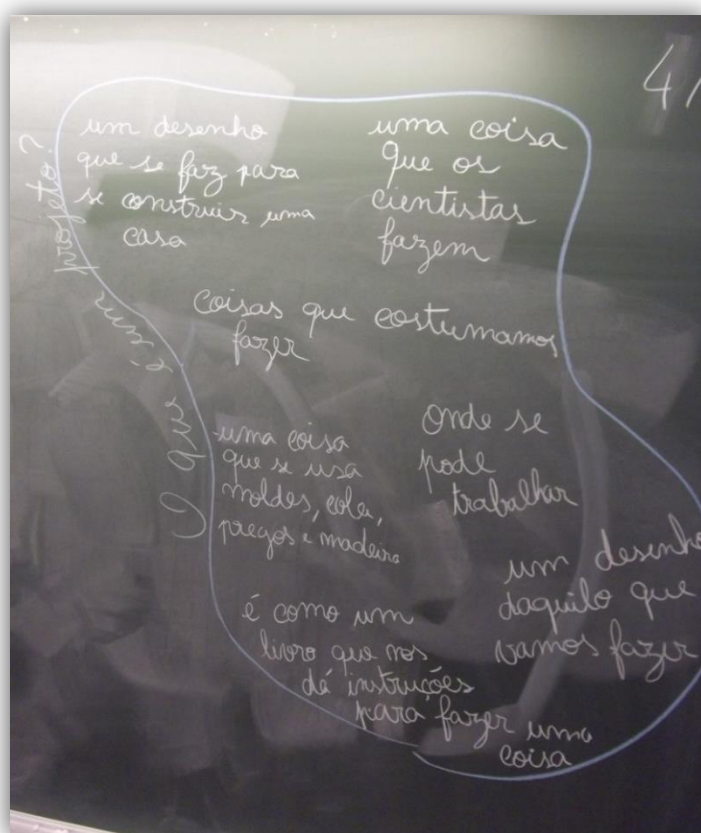 O que é um projeto?
4
um desenho
que se faz para
se construir uma
casa
uma coisa
que os
cientistas
fazem
coisas que costumamos
fazer
uma coisa
que se usa
moldes, cola,
pregos e madeira
onde se
pode
trabalhar
um desenho
daquilo que
vamos fazer
é como um
livro que nos
dá instruções
para fazer uma
coisa